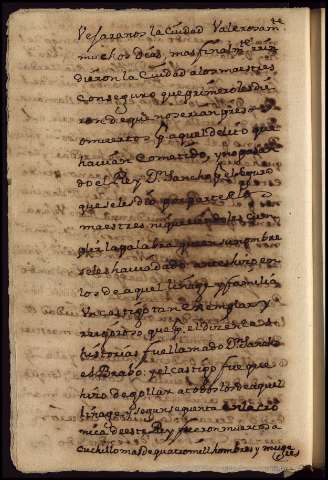 Vejaranos la Ciudad Valerosam.te
muchos dias, mas finalm.te rin
dieron la Ciudad a los maestres
Con seguro que primero les die
ron de que no serian presos
o muertos p.r aquel delito que
havian Cometido, y no
do el Rey D.n Sancho p.r el seguro
que se les dio por parte de los
maestres ni queriendoles cum
plir la palabra que en su nombre
se les havia dado antes hizo en
los de aquel linage, y familia
Vn castigo tan exemplar y
rigoroso que p.r el dicen las
historias fue llamado D.n Sancho
el Brabo: y el castigo fue que
hizo degollar a todos los de aquel
linage y segun se quenta en la cro
nica de este Rey fueron muertos a
cuchillo mas de quatro mill hombres y muge
res